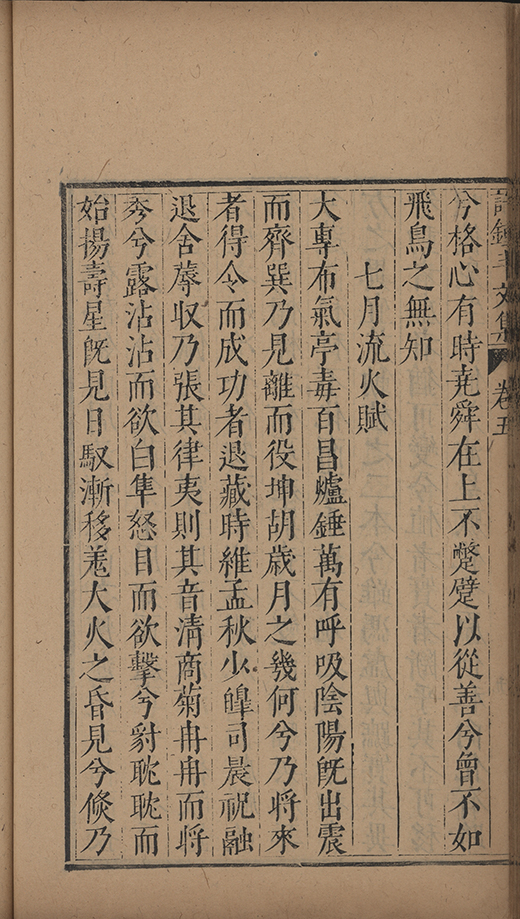 文集
卷五
兮格心有時堯舜在上不蹩躠以從善兮曾不如
飛鳥之無知
七月流火賦
大專布氣亭毒百昌爐錘萬有呼吸陰陽旣出震
而齊巽乃見離而役坤胡歲月之幾何兮乃將來
者得令而成功者退藏時維孟秋少皥司晨祝融
退舍蓐收乃張其律夷則其音清商菊冉冉而將
秀兮露沾沾而欲白隼怒目而欲擊兮豺耽耽而
始揚壽星旣見日馭漸移羗大火之昏見兮倐乃